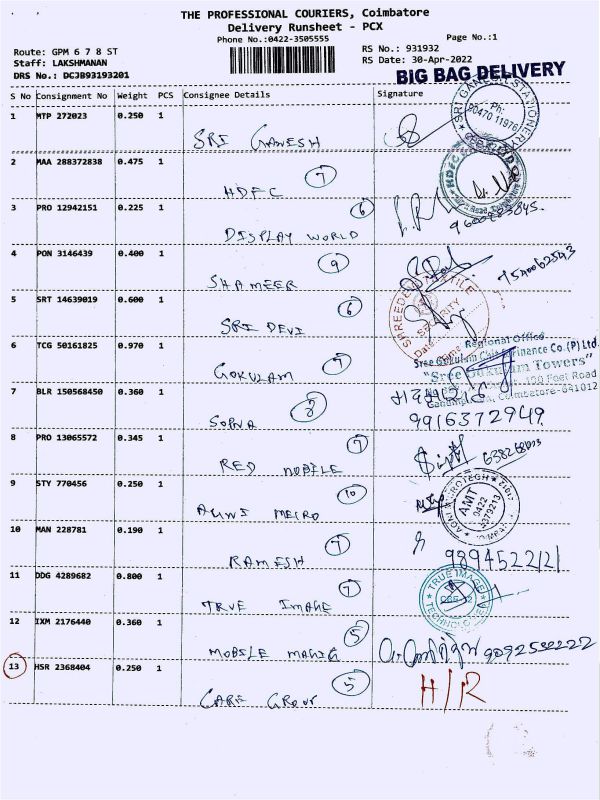 THE PROFESSIONAL COURIERS, Coimbatore
Delivery Runsheet - PCX
Phone No.:0422-3505555
Page No.:1
Route: GPM 6 7 8 ST
RS No.: 931932
Staff: LAKSHMANAN
RS Date: 30-Apr-2022
DRS No.: DCJB93193201
BIG BAG DELIVERY
S No Consignment No Weight PCS Consignee Details Signature
1 MTP 272023 0.250 1
SRI GANESH
SRI GANESH STATIONERY
Ph:
90470 11976
2 MAA 288372838 0.475 1
HDFC 7
3 PRO 12942151 0.225 1
DISPLAY WORLD 6
4 PON 3146439 0.400 1
SHAMEER 9
9540062543
5 SRT 14639019 0.600 1
SRI DEVI 6
6 TCG 50161825 0.970 1
GOKULAM 7
Regional Office
Sree Gokulam Chit & Finance Co.(P) Ltd.
"Sree Gokulam Towers"
100 Feet Road
Coimbatore-641012
7 BLR 150568450 0.360 1
SOPNA 8
9916372949
8 PRO 13065572 0.345 1
RED MOBILE 7
9 STY 770456 0.250 1
AGNI METRO 10
AMT
0422
4379213
10 MAN 228781 0.190 1
RAMESH 7
9894522121
11 DDG 4289682 0.800 1
TRUE IMAGE 7
TRUE IMAGE
12 IXM 2176440 0.360 1
MOBILE MAGIG 5
9092592222
13 HSR 2368404 0.250 1
CARE GROUP 5
H/R